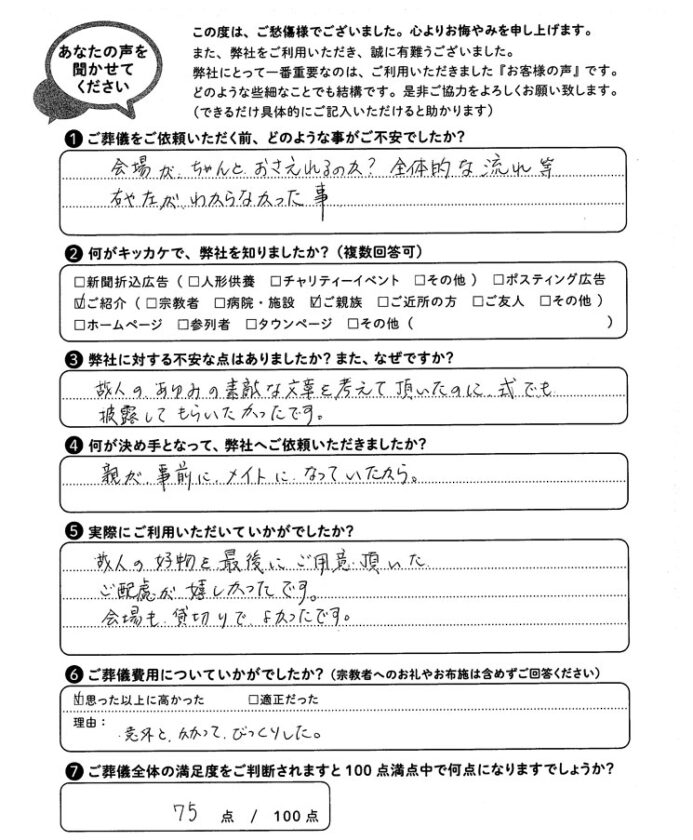 あなたの声を
聞かせて
ください
この度は、ご愁傷様でございました。心よりお悔やみを申し上げます。
また、弊社をご利用いただき、誠に有難うございました。
弊社にとって一番重要なのは、ご利用いただきました『お客様の声』です。
どのような些細なことでも結構です。是非ご協力をよろしくお願い致します。
（できるだけ具体的にご記入いただけると助かります）
❶ご葬儀をご依頼いただく前、どのような事がご不安でしたか？
会場が、ちゃんと おさえれるのか？ 全体的な流れ等
右や左が、わからなかった事
❷何がキッカケで、弊社を知りましたか？（複数回答可）
□新聞折込広告（□人形供養 □チャリティーイベント □その他） □ポスティング広告
☑ご紹介（□宗教者 □病院・施設 ☑ご親族 □ご近所の方 □ご友人 □その他）
□ホームページ □参列者 □タウンページ □その他（ ）
❸弊社に対する不安な点はありましたか？また、なぜですか？
故人の、あゆみの素敵な文章を考えて頂いたのに、式でも
披露してもらいたかったです。
❹何が決め手となって、弊社へご依頼いただきましたか？
親が、事前に、メイトに、なっていたから。
❺実際にご利用いただいていかがでしたか？
故人の好物を最後にご用意頂いた
ご配慮が嬉しかったです。
会場も、貸切りで よかったです。
❻ご葬儀費用についていかがでしたか？（宗教者へのお礼やお布施は含めずご回答ください）
☑思った以上に高かった □適正だった
理由：
意外と、かかって、びっくりした。
❼ご葬儀全体の満足度をご判断されますと100点満点中で何点になりますでしょうか？
75 点 / 100点